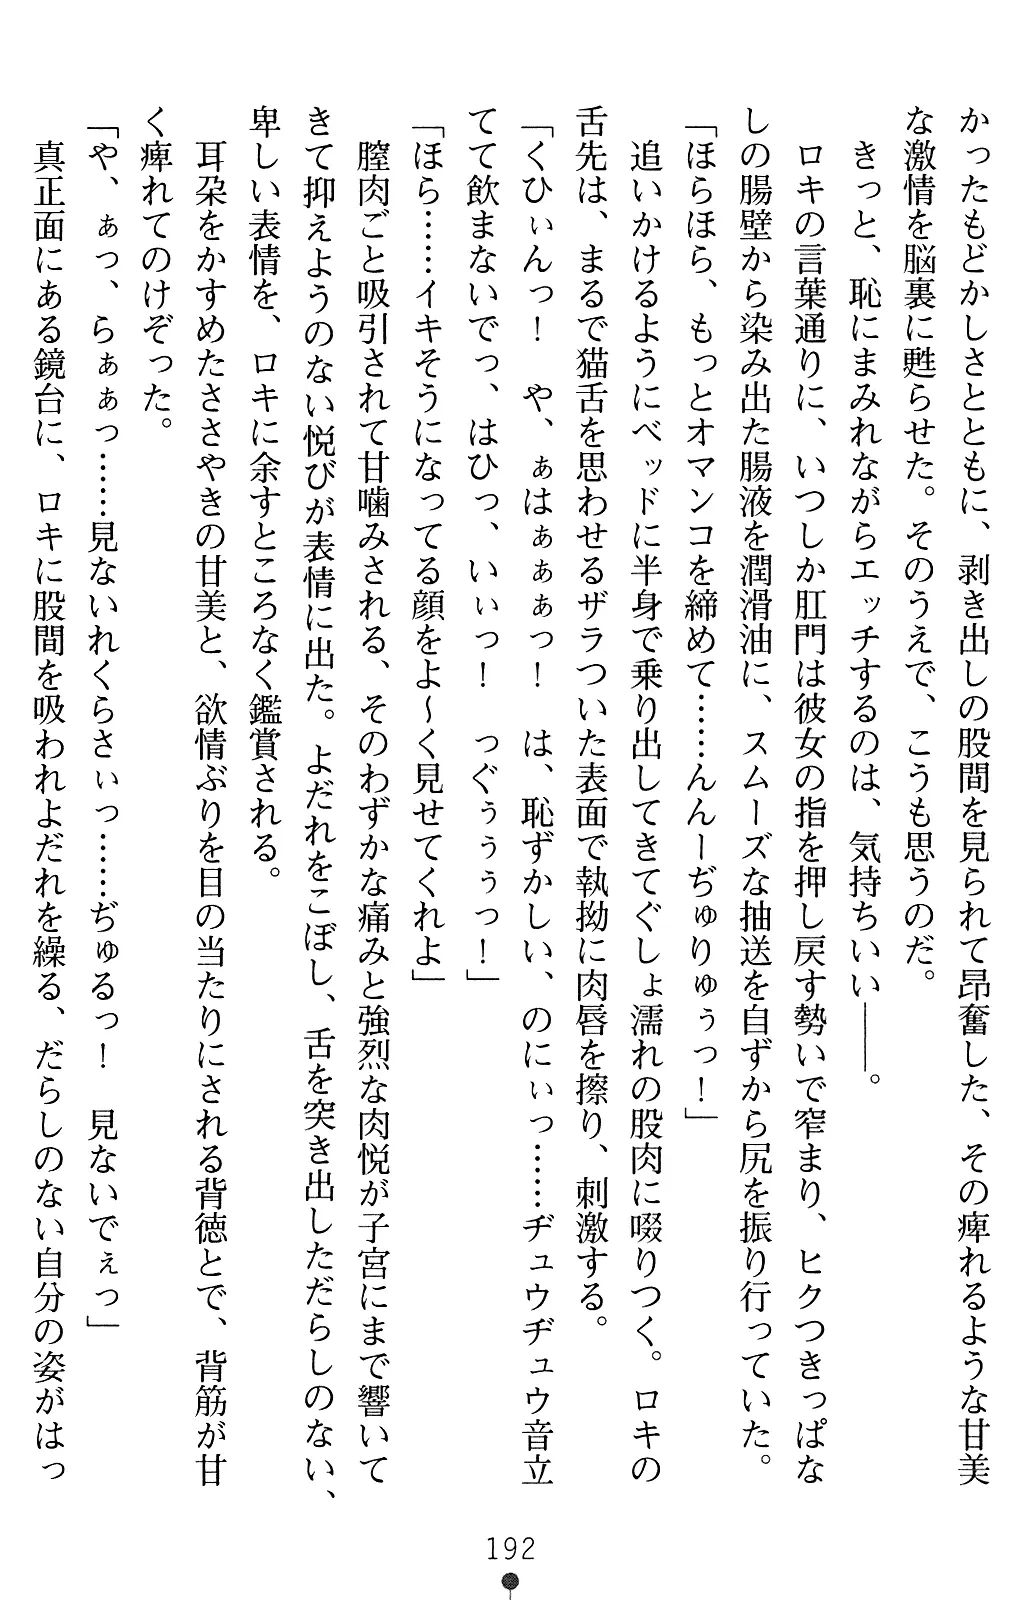 かったもどかしさとともに、剥き出しの股間を見られて昂奮した、その痺れるような甘美
な激情を脳裏に甦らせた。そのうえで、こうも思うのだ。
きっと、恥にまみれながらエッチするのは、気持ちいい――。
ロキの言葉通りに、いつしか肛門は彼女の指を押し戻す勢いで窄まり、ヒクつきっぱな
しの腸壁から染み出た腸液を潤滑油に、スムーズな抽送を自ずから尻を振り行っていた。
「ほらほら、もっとオマンコを締めて……んんーぢゅりゅぅっ！」
追いかけるようにベッドに半身で乗り出してきてぐしょ濡れの股肉に啜りつく。ロキの
舌先は、まるで猫舌を思わせるザラついた表面で執拗に肉唇を擦り、刺激する。
「くひぃんっ！　や、ぁはぁぁぁっ！　は、恥ずかしい、のにぃっ……ヂュウヂュウ音立
てて飲まないでっ、はひっ、いぃっ！　っぐぅぅぅっ！」
「ほら……イキそうになってる顔をよ～く見せてくれよ」
膣肉ごと吸引されて甘噛みされる、そのわずかな痛みと強烈な肉悦が子宮にまで響いて
きて抑えようのない悦びが表情に出た。よだれをこぼし、舌を突き出しただらしのない、
卑しい表情を、ロキに余すところなく鑑賞される。
耳朶をかすめたささやきの甘美と、欲情ぶりを目の当たりにされる背徳とで、背筋が甘
く痺れてのけぞった。
「や、ぁっ、らぁぁっ……見ないれくらさぃっ……ぢゅるっ！　見ないでぇっ」
真正面にある鏡台に、ロキに股間を吸われよだれを繰る、だらしのない自分の姿がはっ
192